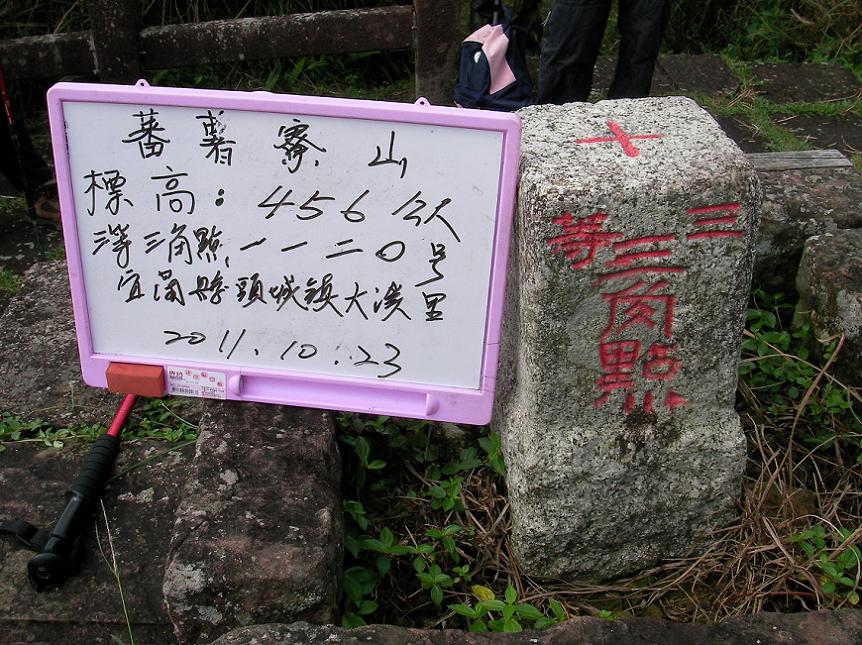 蕃薯寮山
標高：456公尺
三等三角點，一一二〇号
宜蘭縣頭城鎮大溪里
2011.10.23
十
三等
三角點